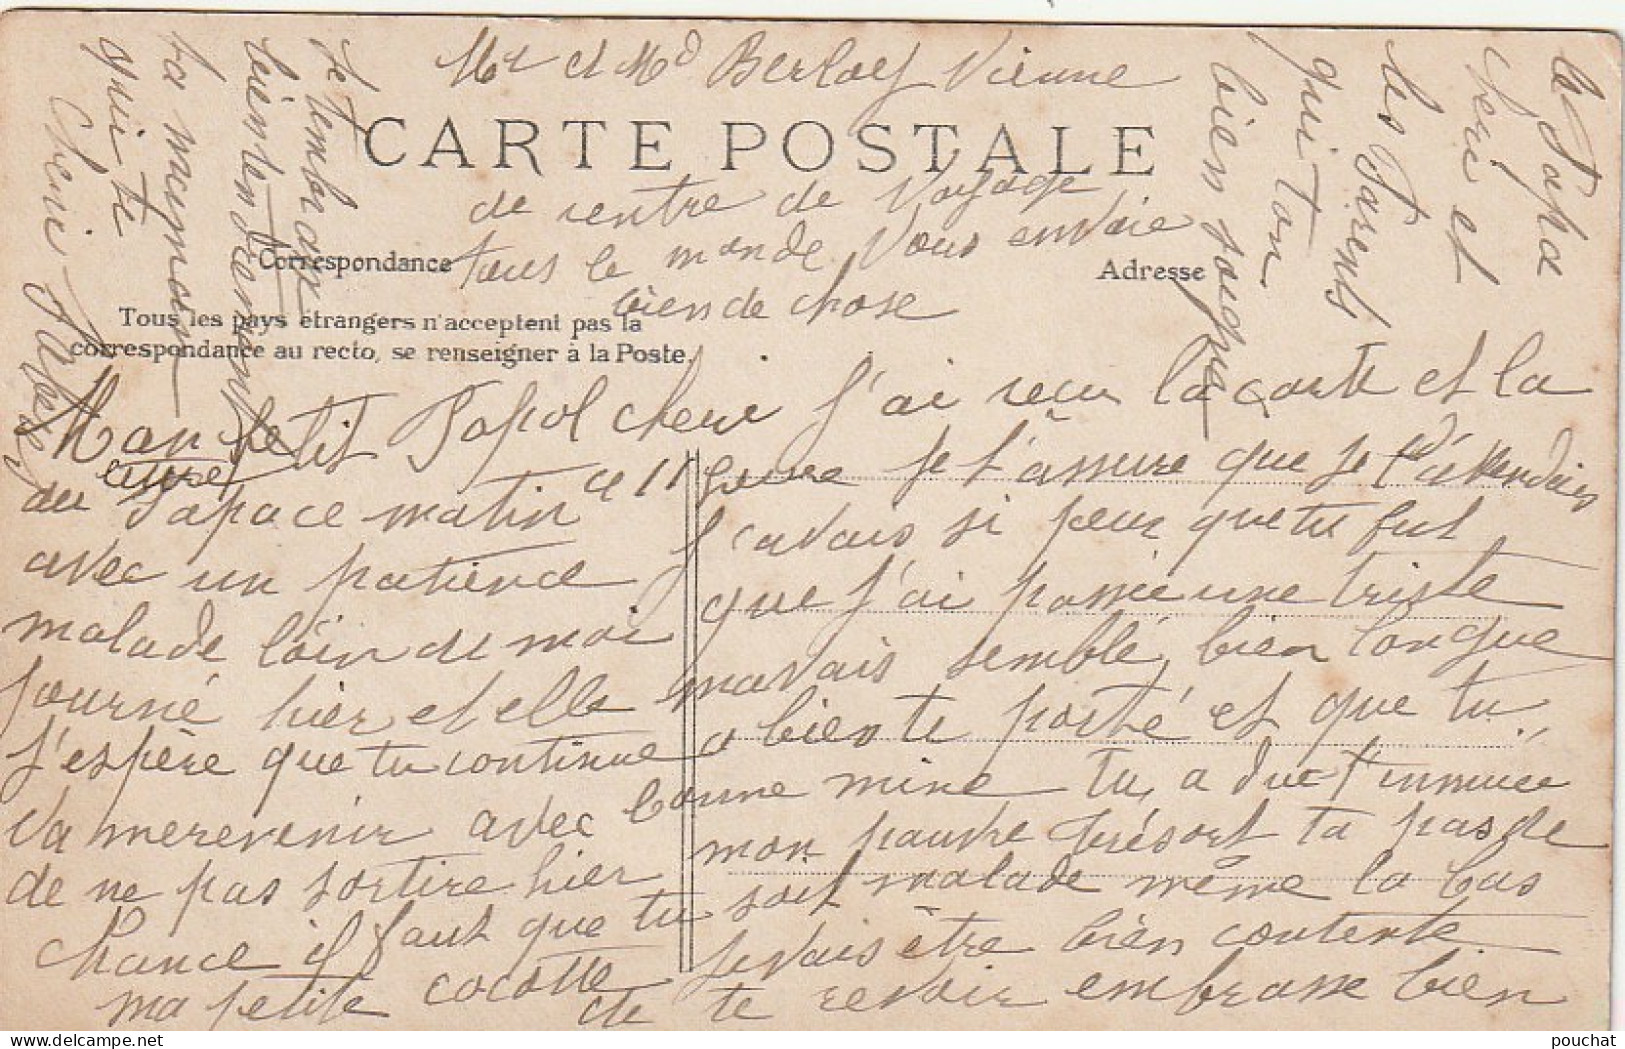 Mr et Md Berloef Vienne
CARTE POSTALE
de rentre de Voyage
tous le monde Vous envoie
bien de chose
Correspondance
Adresse
Tous les pays étrangers n'acceptent pas la
correspondance au recto, se renseigner à la Poste.
Mon Petit Popol cheri J'ai reçu la carte et la
lettre
du Papa ce matin a 11 heure je t'assure que je l'attendais
avec un patience J'avais si peur que tu fut
malade loin de moi que j'ai passée une triste
journé hier et elle mavais semblé bien longue
J'espère que tu continue a bien te porté et que tu
va me revenir avec bonne mine tu, a due t'ennuiee
de ne pas sortire hier mon pauvre trésort ta pas de
chance il faut que tu soit malade même la bas
ma petite cocotte je vais être bien contente
de te revoir embrasse bien
le Papa
cheri et
les Parents
qui ton
bien soigné
ta maman
qui te
cherie